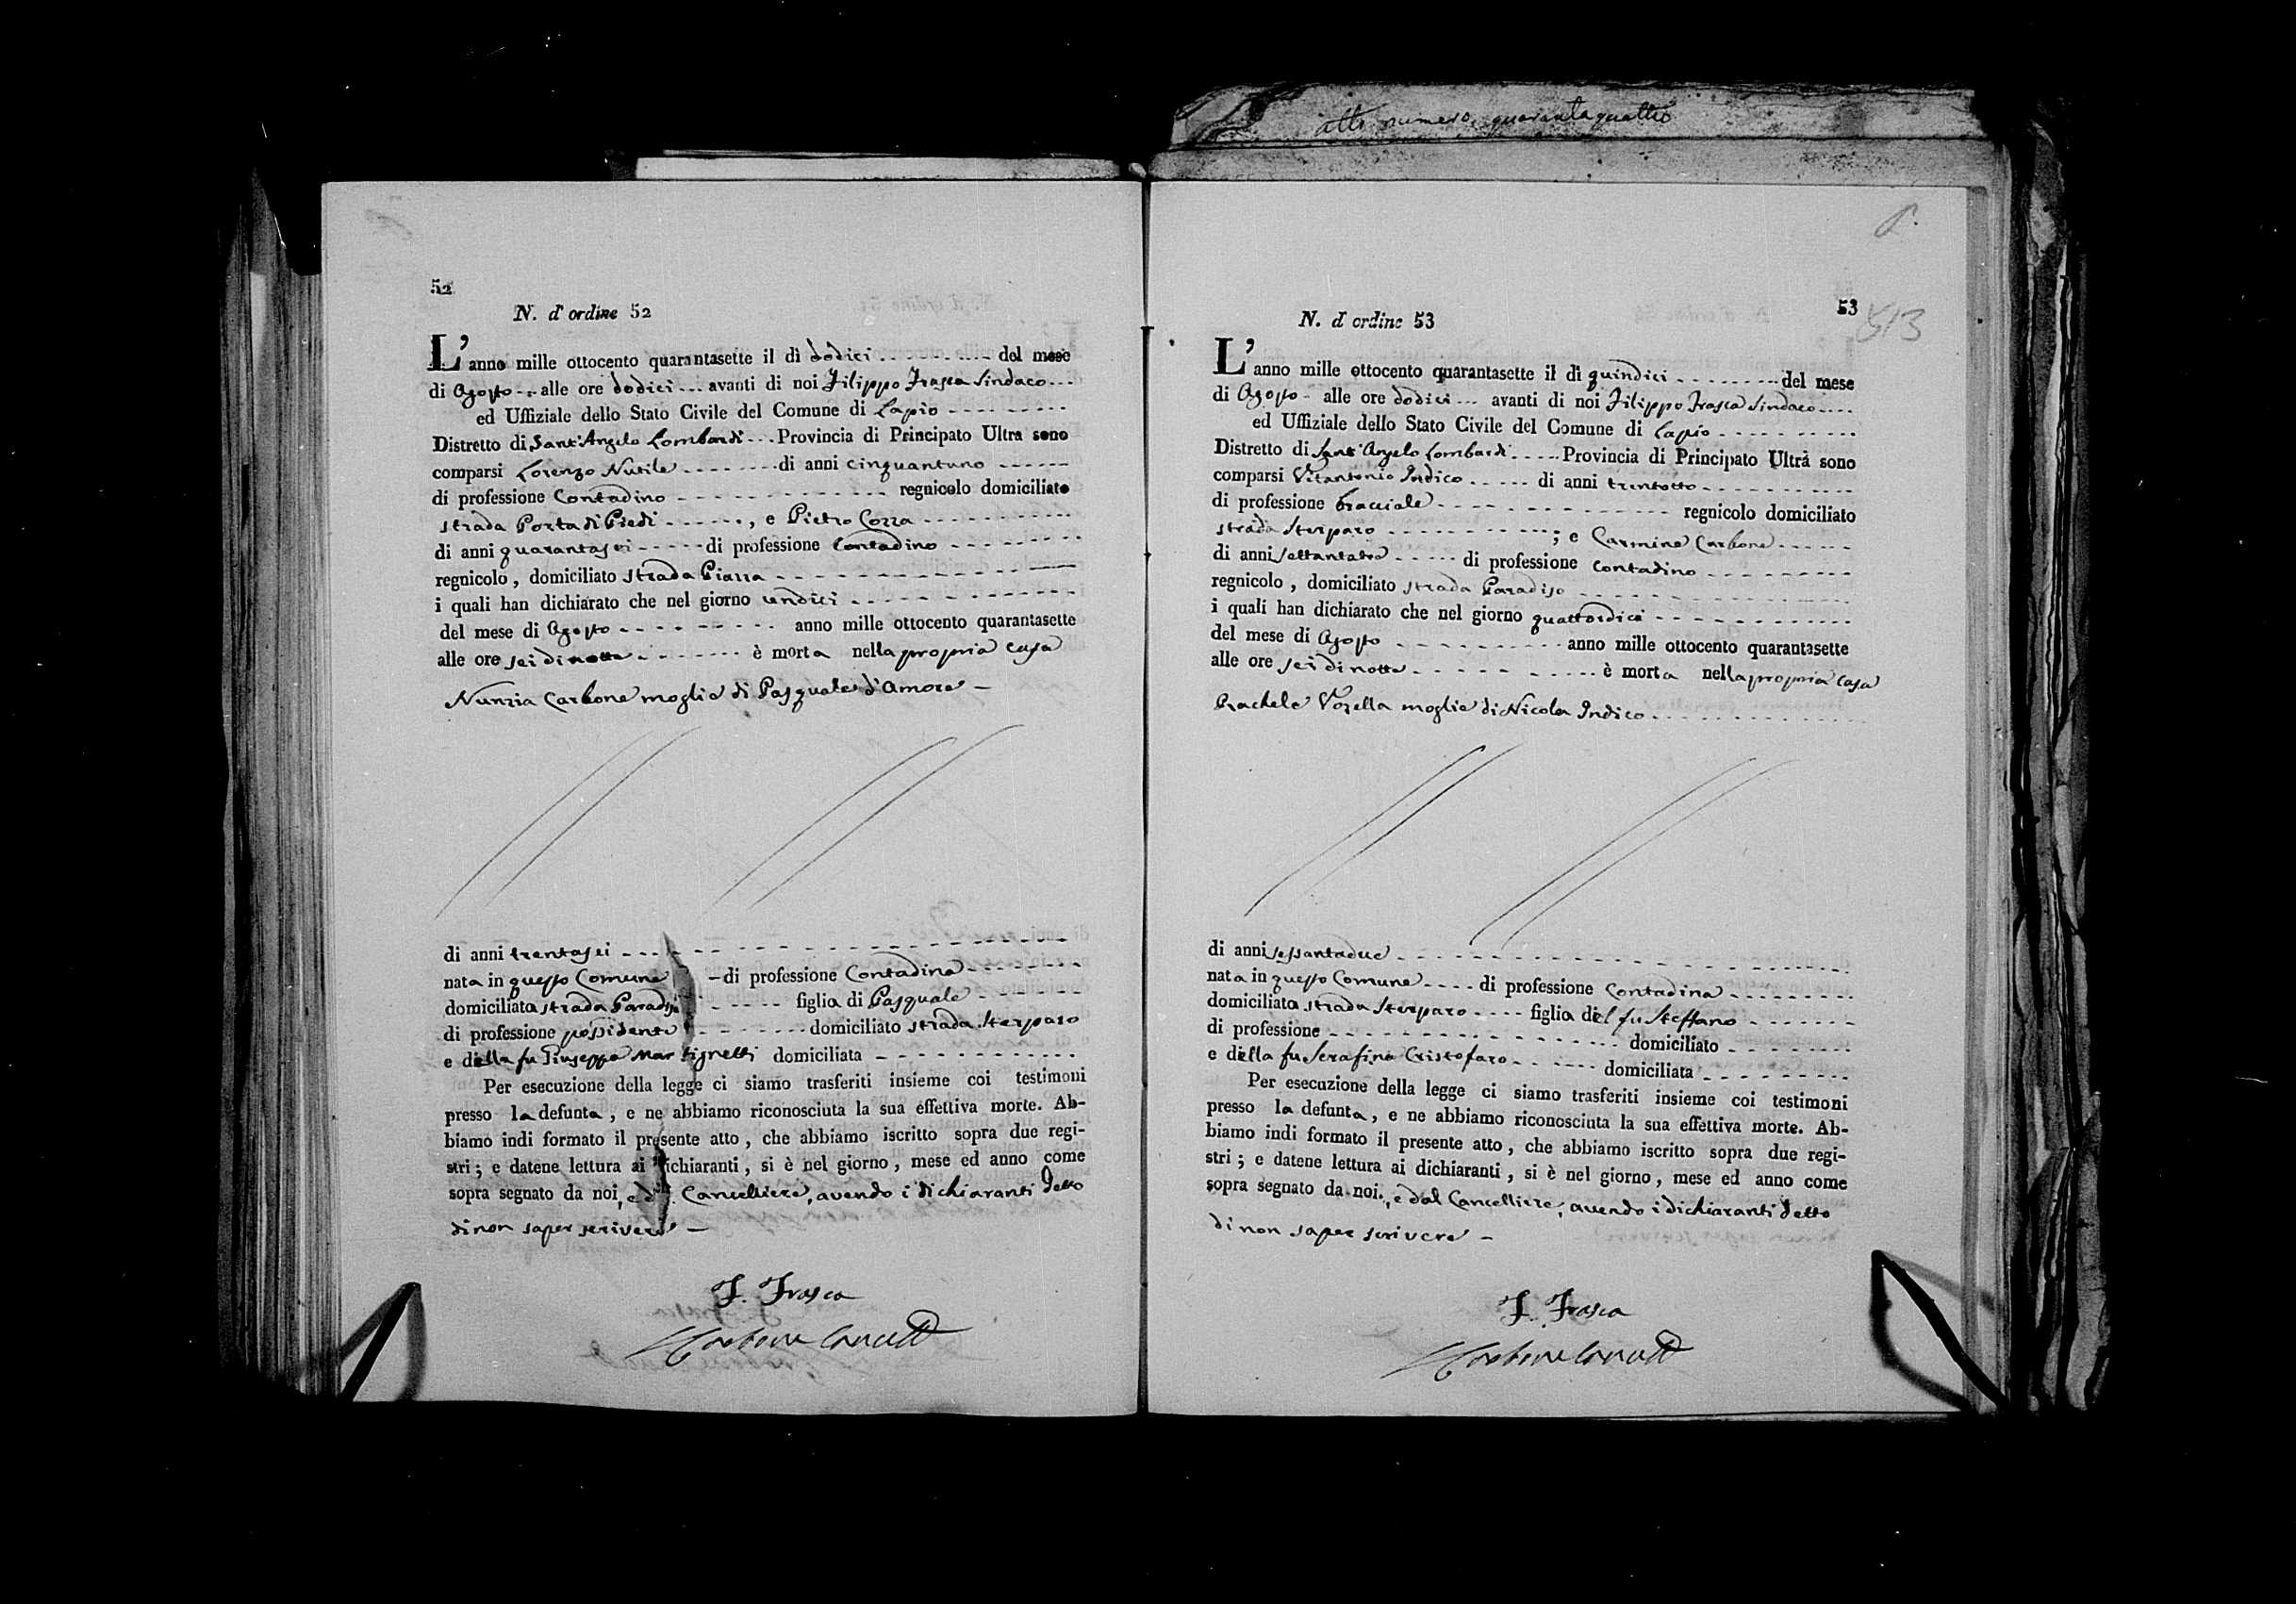 atto numero quarantaquattro
52
N. d'ordine 52
L'anno mille ottocento quarantasette il dì dodici del mese
di Agosto alle ore dodici avanti di noi Filippo Frasca Sindaco
ed Uffiziale dello Stato Civile del Comune di Lapio
Distretto di Sant'Angelo Lombardi Provincia di Principato Ultra sono
comparsi Lorenzo Nutile di anni cinquantuno
di professione Contadino regnicolo domiciliato
strada Porta di Piedi, e Pietro Cozza
di anni quarantasei di professione Contadino
regnicolo, domiciliato strada Piazza
i quali han dichiarato che nel giorno undici
del mese di Agosto anno mille ottocento quarantasette
alle ore sei di notte è morta nella propria casa
Nunzia Carbone moglie di Pasquale d'Amore
di anni trentasei
nata in questo Comune di professione Contadina
domiciliata strada Paradiso figlia di Pasquale
di professione possidente domiciliato strada Sterparo
e della fu Giuseppa Martignetti domiciliata
Per esecuzione della legge ci siamo trasferiti insieme coi testimoni
presso la defunta, e ne abbiamo riconosciuta la sua effettiva morte. Ab-
biamo indi formato il presente atto, che abbiamo iscritto sopra due regi-
stri; e datene lettura ai dichiaranti, si è nel giorno, mese ed anno come
sopra segnato da noi, e dal Cancelliere, avendo i dichiaranti detto
di non saper scrivere
F. Frasca
53
513
N. d'ordine 53
L'anno mille ottocento quarantasette il dì quindici del mese
di Agosto alle ore dodici avanti di noi Filippo Frasca Sindaco
ed Uffiziale dello Stato Civile del Comune di Lapio
Distretto di Sant'Angelo Lombardi Provincia di Principato Ultrà sono
comparsi Vitantonio Indico di anni trentotto
di professione bracciale regnicolo domiciliato
strada Sterparo; e Carmine Carbone
di anni settantatre di professione Contadino
regnicolo, domiciliato strada Paradiso
i quali han dichiarato che nel giorno quattordici
del mese di Agosto anno mille ottocento quarantasette
alle ore sei di notte è morta nella propria casa
Rachele Vozella moglie di Nicola Indico
di anni sessantadue
nata in questo Comune di professione Contadina
domiciliata strada Sterparo figlia del fu Steffano
di professione domiciliato
e della fu Serafina Cristofaro domiciliata
Per esecuzione della legge ci siamo trasferiti insieme coi testimoni
presso la defunta, e ne abbiamo riconosciuta la sua effettiva morte. Ab-
biamo indi formato il presente atto, che abbiamo iscritto sopra due regi-
stri; e datene lettura ai dichiaranti, si è nel giorno, mese ed anno come
sopra segnato da noi, e dal Cancelliere, avendo i dichiaranti detto
di non saper scrivere
F. Frasca